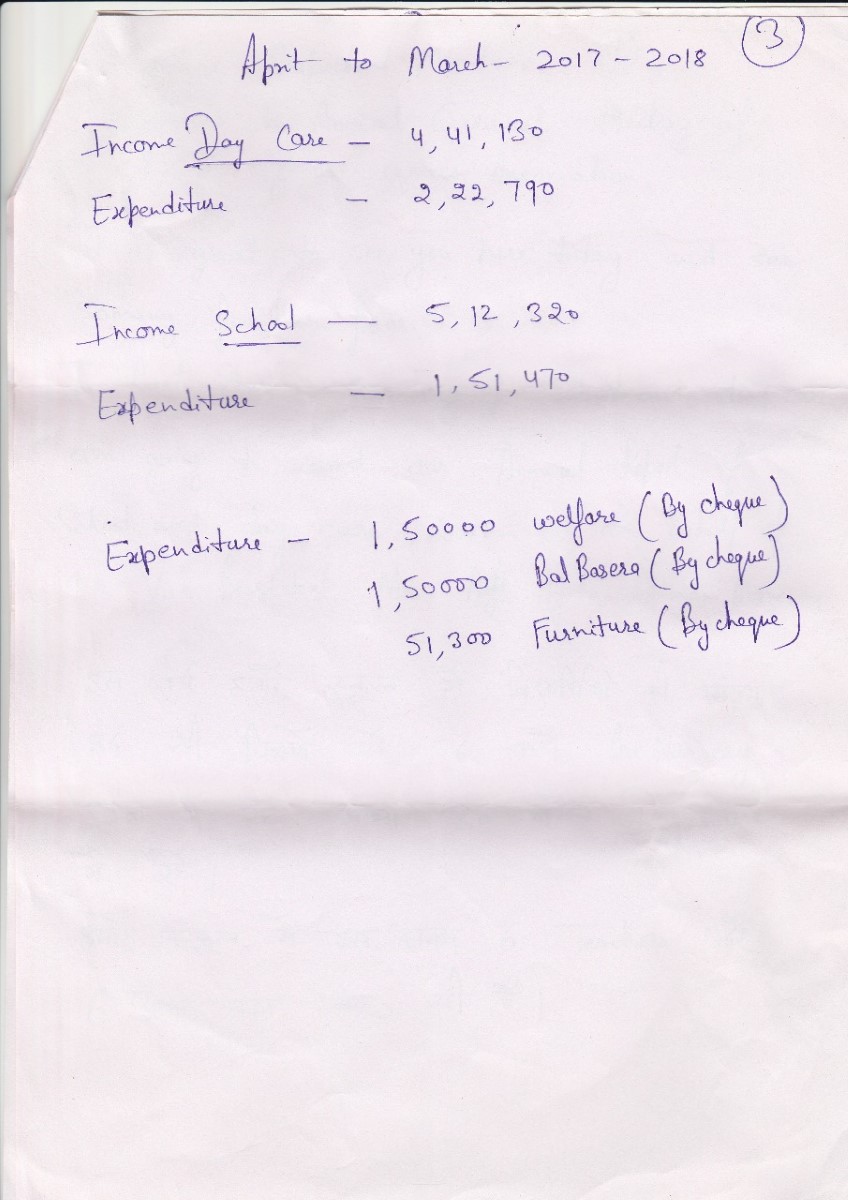 3
April to March - 2017 - 2018
Income Day Care - 4,41,130
Expenditure - 2,22,790
Income School — 5,12,320
Expenditure — 1,51,470
Expenditure - 1,50000 welfare (By cheque)
1,50000 Bal Basera (By cheque)
51,300 Furniture (By cheque)